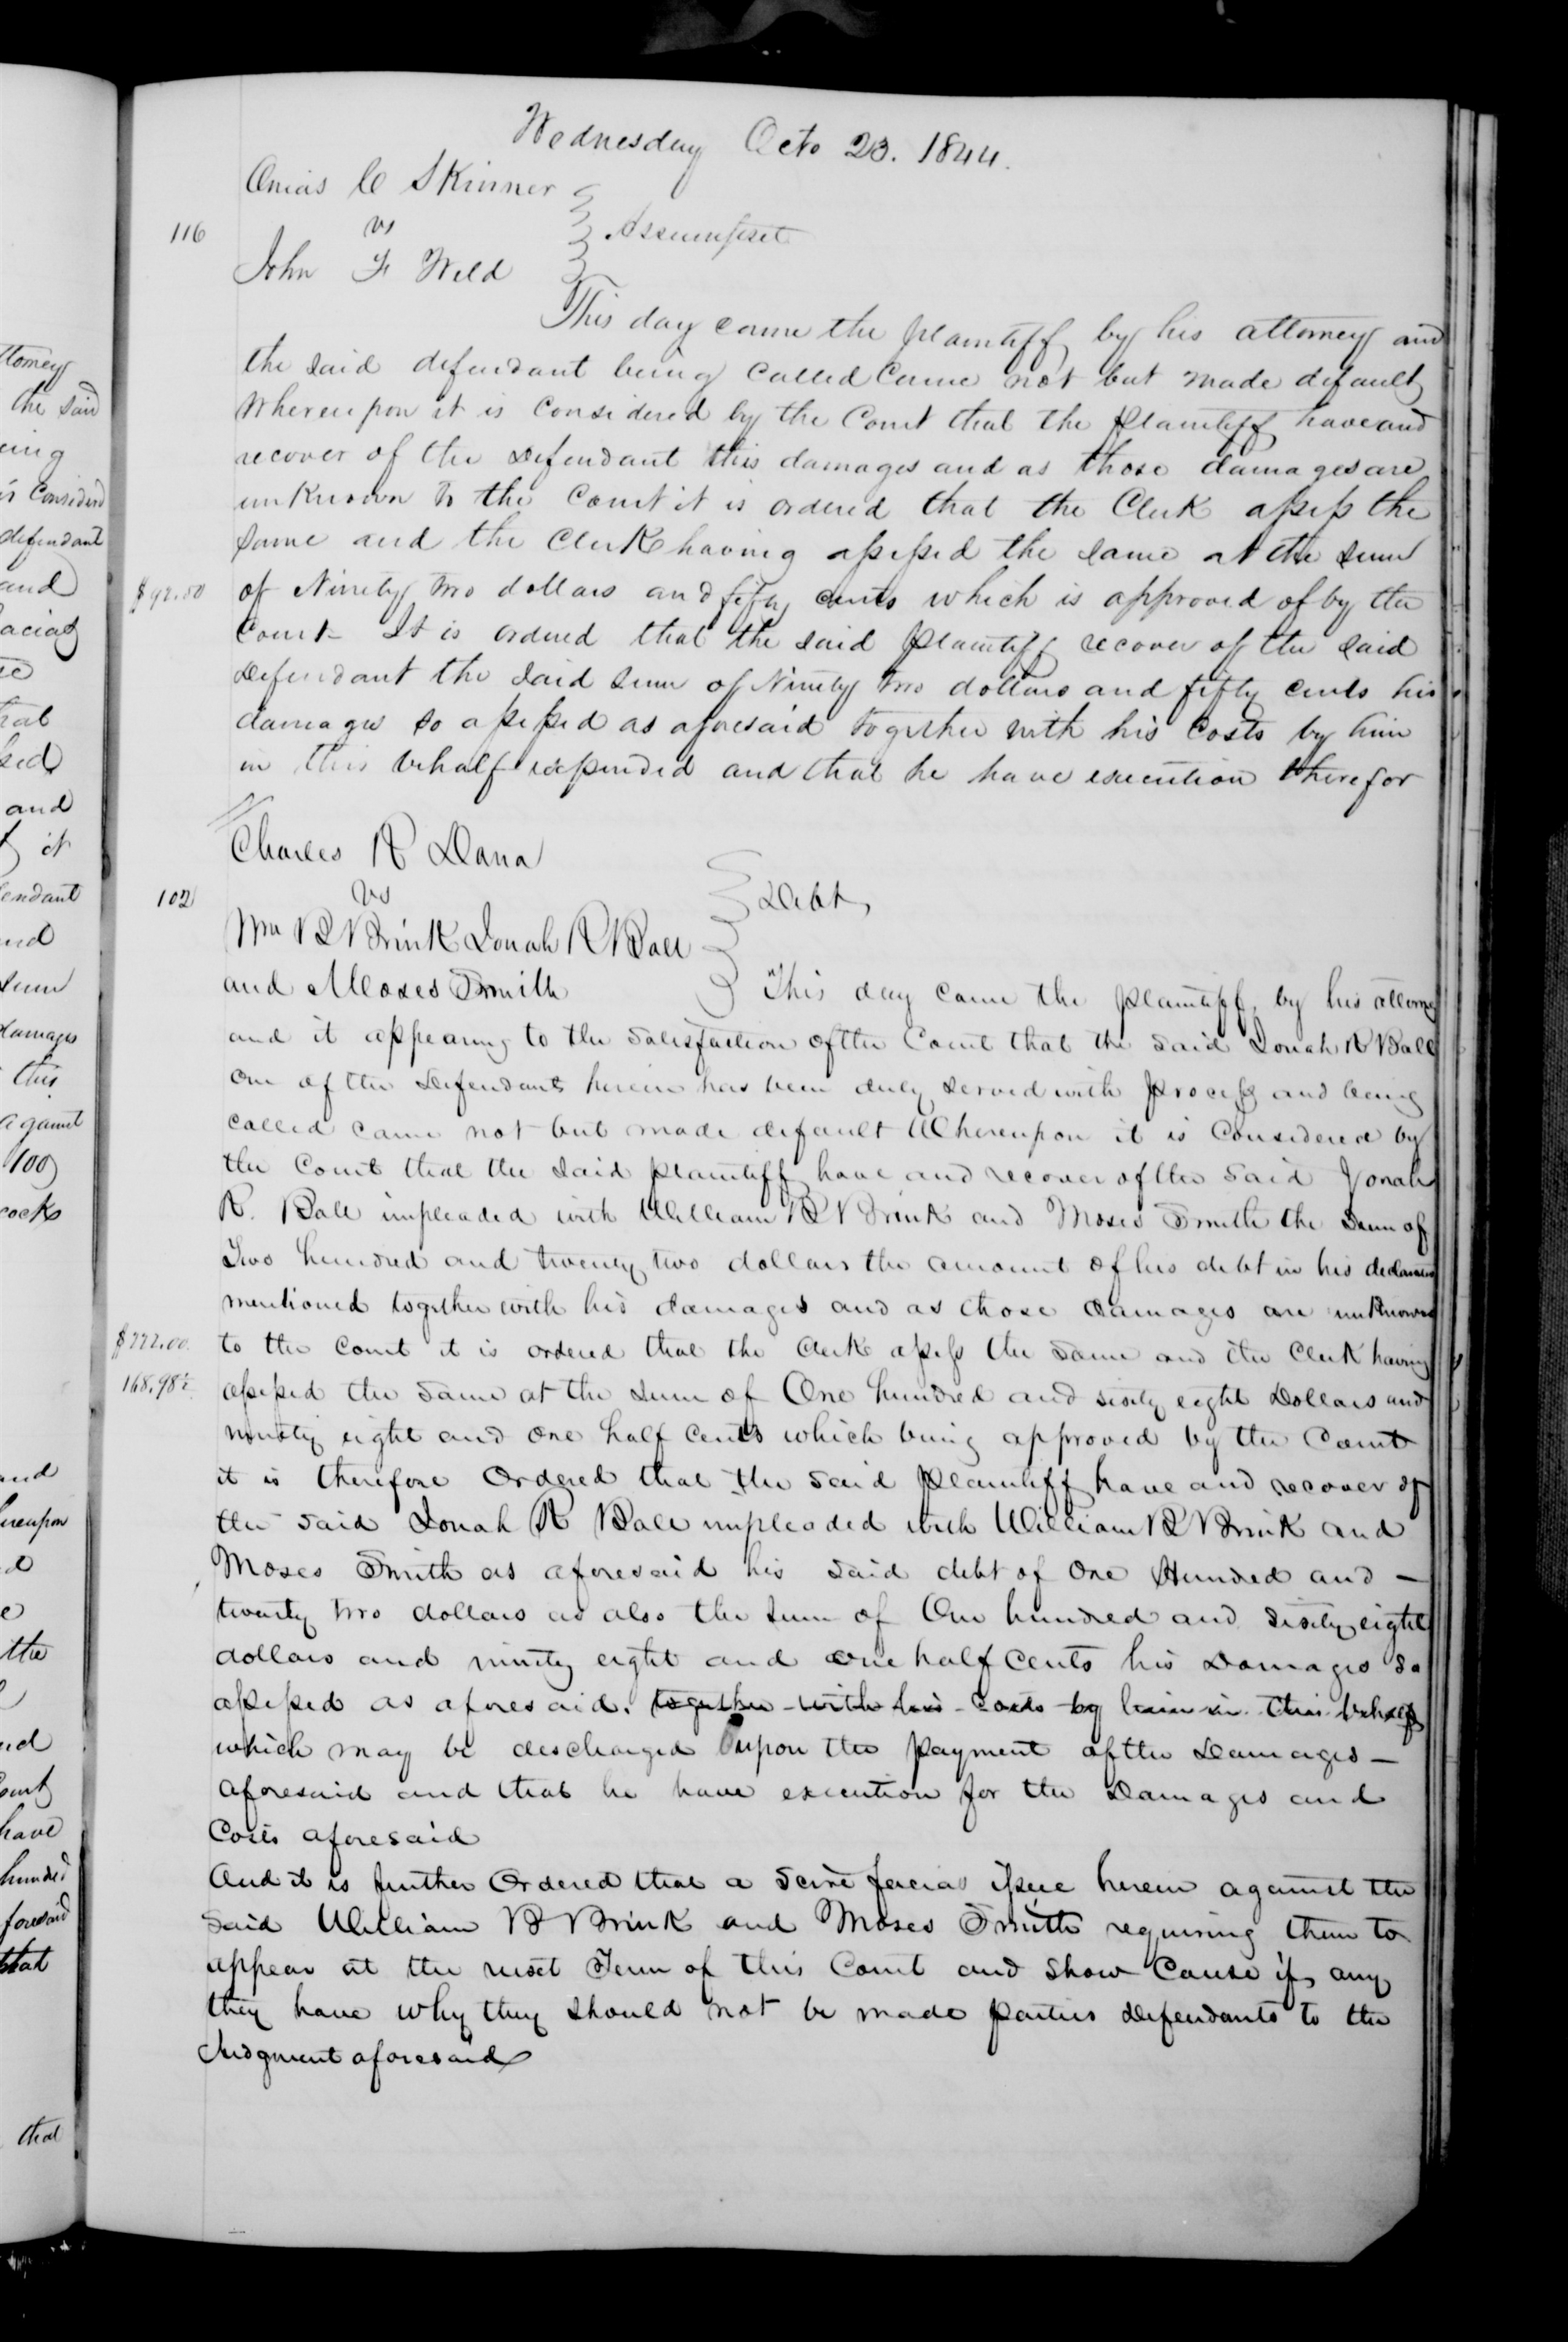 Wednesday Octo 23. 1844.
Onias C Skinner
116 vs Assumpsit
John F Weld
This day came the plaintiff by his attorney and
the said defendant being called Came not but made default
Whereupon it is Considered by the Court that the plaintiff have and
recover of the Defendant this damages and as those damages are
unknown to the Court it is ordered that the Clerk assess the
same and the Clerk having assessed the same at the sum
$92.50 of Ninety two dollars and fifty cents which is approved of by the
Court It is ordered that the said plaintiff recover of the said
Defendant the said sum of Ninety two dollars and fifty cents his
damages so assessed as aforesaid together with his Costs by him
in this behalf expended and that he have execution therefor
Charles R Dana
102 vs Debt
Wm B Brink Jonah R Ball
and Moses Smith This day came the plaintiff by his attorney
and it appearing to the satisfaction of the Court that the said Jonah R Ball
one of the Defendants herein has been duly served with process and being
called came not but made default Whereupon it is Considered by
the Court that the said plaintiff have and recover of the said Jonah
R. Ball impleaded with William B Brink and Moses Smith the Sum of
Two hundred and twenty two dollars the amount of his debt in his declaration
mentioned together with his damages and as those Damages are unknown
$222.00. to the Court it is ordered that the Clerk assess the same and the Clerk having
168.98½ assessed the same at the sum of One hundred and sixty eight Dollars and
ninety eight and one half Cents which being approved by the Court
it is therefore Ordered that the said plaintiff have and recover of
the said Jonah R Ball impleaded with William B Brink and
Moses Smith as aforesaid his said debt of One Hundred and –
twenty two dollars as also the sum of One hundred and sixty eight
dollars and ninety eight and one half Cents his Damages so
assessed as aforesaid. together with his Costs by him in this behalf
which may be discharged upon the payment of the Damages –
aforesaid and that he have execution for the Damages and
Costs aforesaid
And it is further Ordered that a Scire facias issue herein against the
said William B Brink and Moses Smith requiring them to
appear at the next Term of this Court and Show Cause if any
they have why they should not be made parties defendants to the
Judgment aforesaid